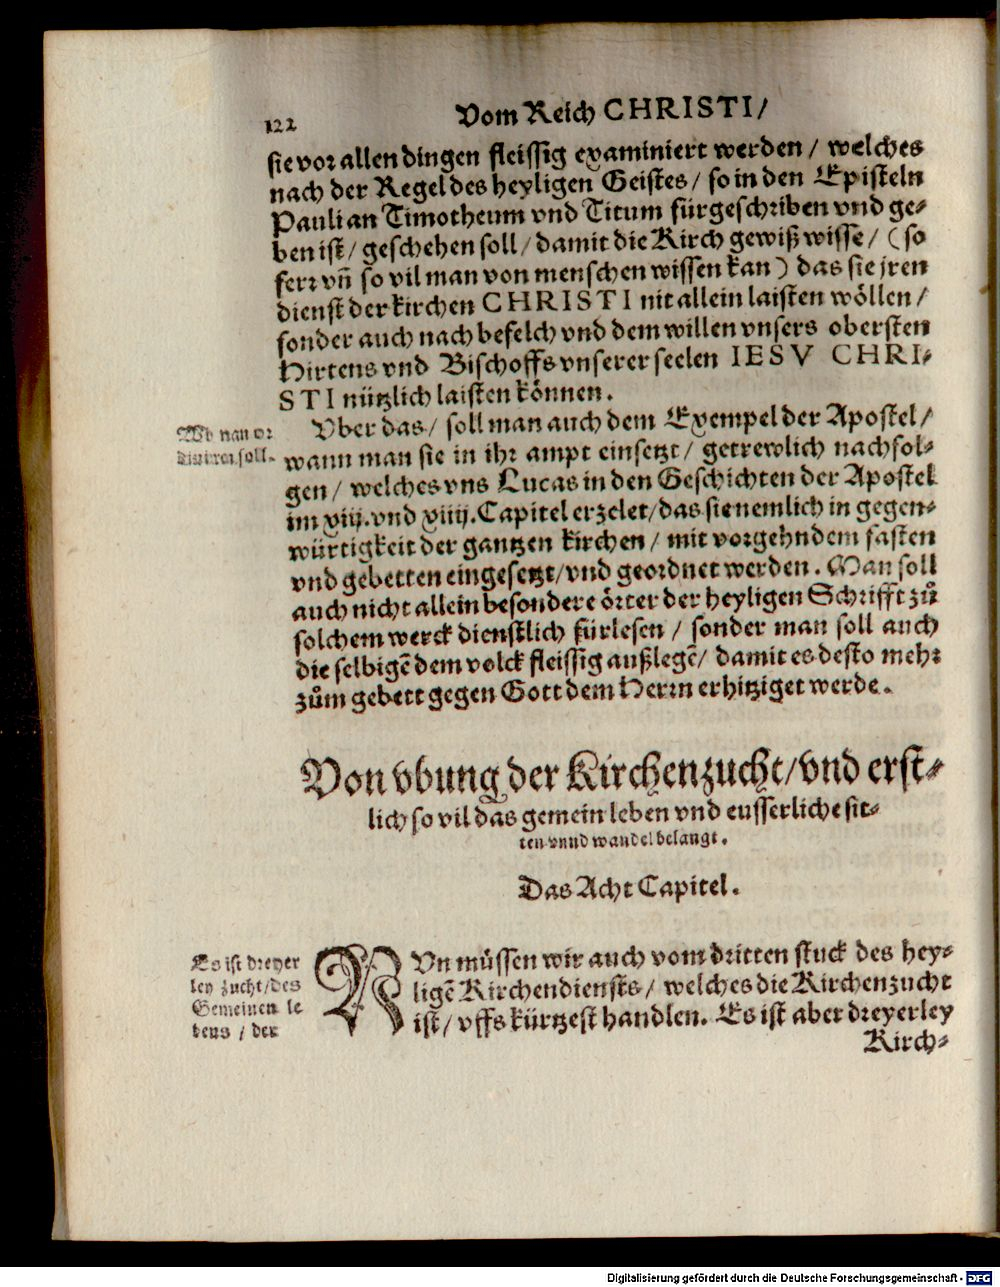 122
Vom Reich CHRISTI/
sie vor allen dingen fleissig examiniert werden / welches
nach der Regel des heyligen Geistes / so in den Episteln
Pauli an Timotheum vnd Titum fürgeschriben vnd ge-
ben ist / geschehen soll / damit die Kirch gewiß wisse / (so
ferr vn̄ so vil man von menschen wissen kan) das sie jren
dienst der kirchen CHRISTI nit allein laisten wöllen /
sonder auch nach befelch vnd dem willen vnsers obersten
Hirtens vnd Bischoffs vnserer seelen IESV CHRI-
STI nützlich laisten können.
Vber das / soll man auch dem Exempel der Apostel /
wann man sie in ihr ampt einsetzt / getrewlich nachfol-
gen / welches vns Lucas in den Geschichten der Apostel
im xiij. vnd xiiij. Capitel erzelet / das sie nemlich in gegen-
würtigkeit der gantzen kirchen / mit vorgehndem fasten
vnd gebetten eingesetzt / vnd geordnet werden. Man soll
auch nicht allein besondere örter der heyligen Schrifft zů
solchem werck dienstlich fürlesen / sonder man soll auch
die selbigē dem volck fleissig außlegē / damit es desto mehr
zům gebett gegen Gott dem Herrn erhitziget werde.
soll.
Von vbung der Kirchenzucht / vnd erst-
lich so vil das gemein leben vnd eusserliche sit-
ten vnnd wandel belangt.
Das Acht Capitel.
Es ist dreyer
ley zucht / des
Gemeinen le
bens / der
NVn müssen wir auch vom dritten stuck des hey-
ligē Kirchendiensts / welches die Kirchenzucht
ist / vffs kürtzest handlen. Es ist aber dreyerley
Kirch-
Digitalisierung gefördert durch die Deutsche Forschungsgemeinschaft - DFG